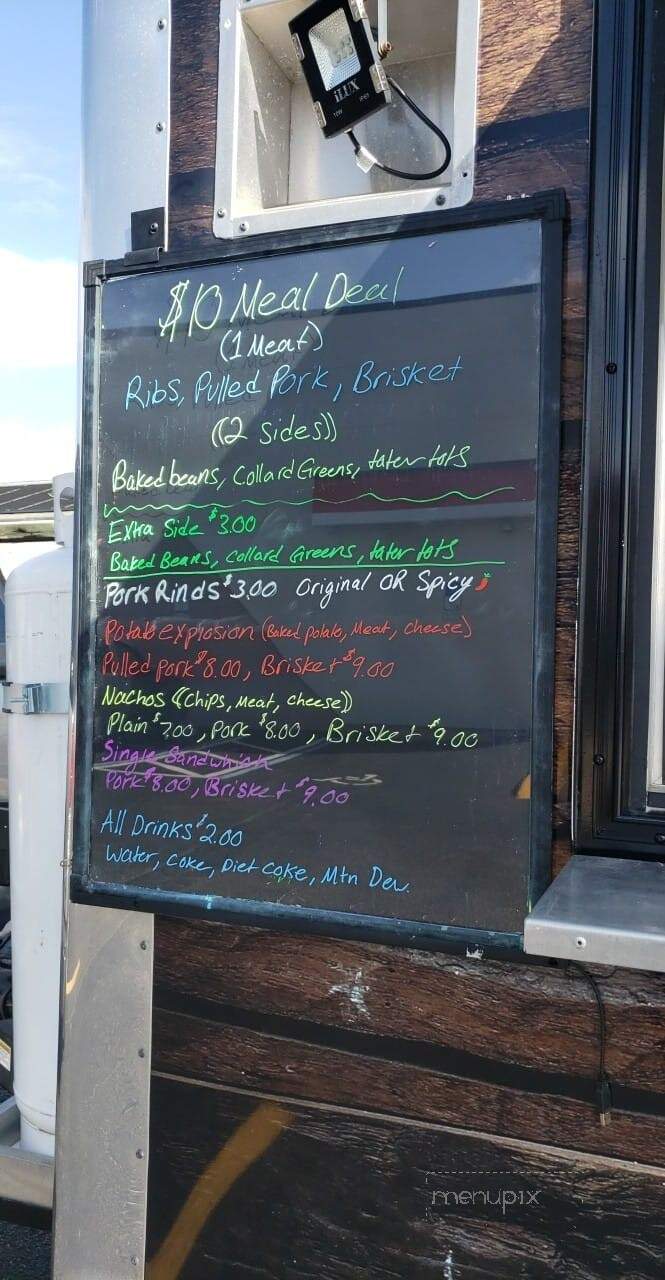 iLUX
$10 Meal Deal
(1 Meat)
Ribs, Pulled Pork, Brisket
((2 Sides))
Baked beans, Collard Greens, tater tots
Extra Side $3.00
Baked Beans, collard Greens, tater tots
Pork Rinds $3.00 Original OR Spicy
Potato explosion (Baked potato, Meat, Cheese)
Pulled pork $8.00, Brisket $9.00
Nachos ((Chips, Meat, Cheese))
Plain $7.00, Pork $8.00, Brisket $9.00
Single Sandwhich
Pork $8.00, Brisket $9.00
All Drinks $2.00
Water, Coke, Diet Coke, Mtn Dew.
menupix